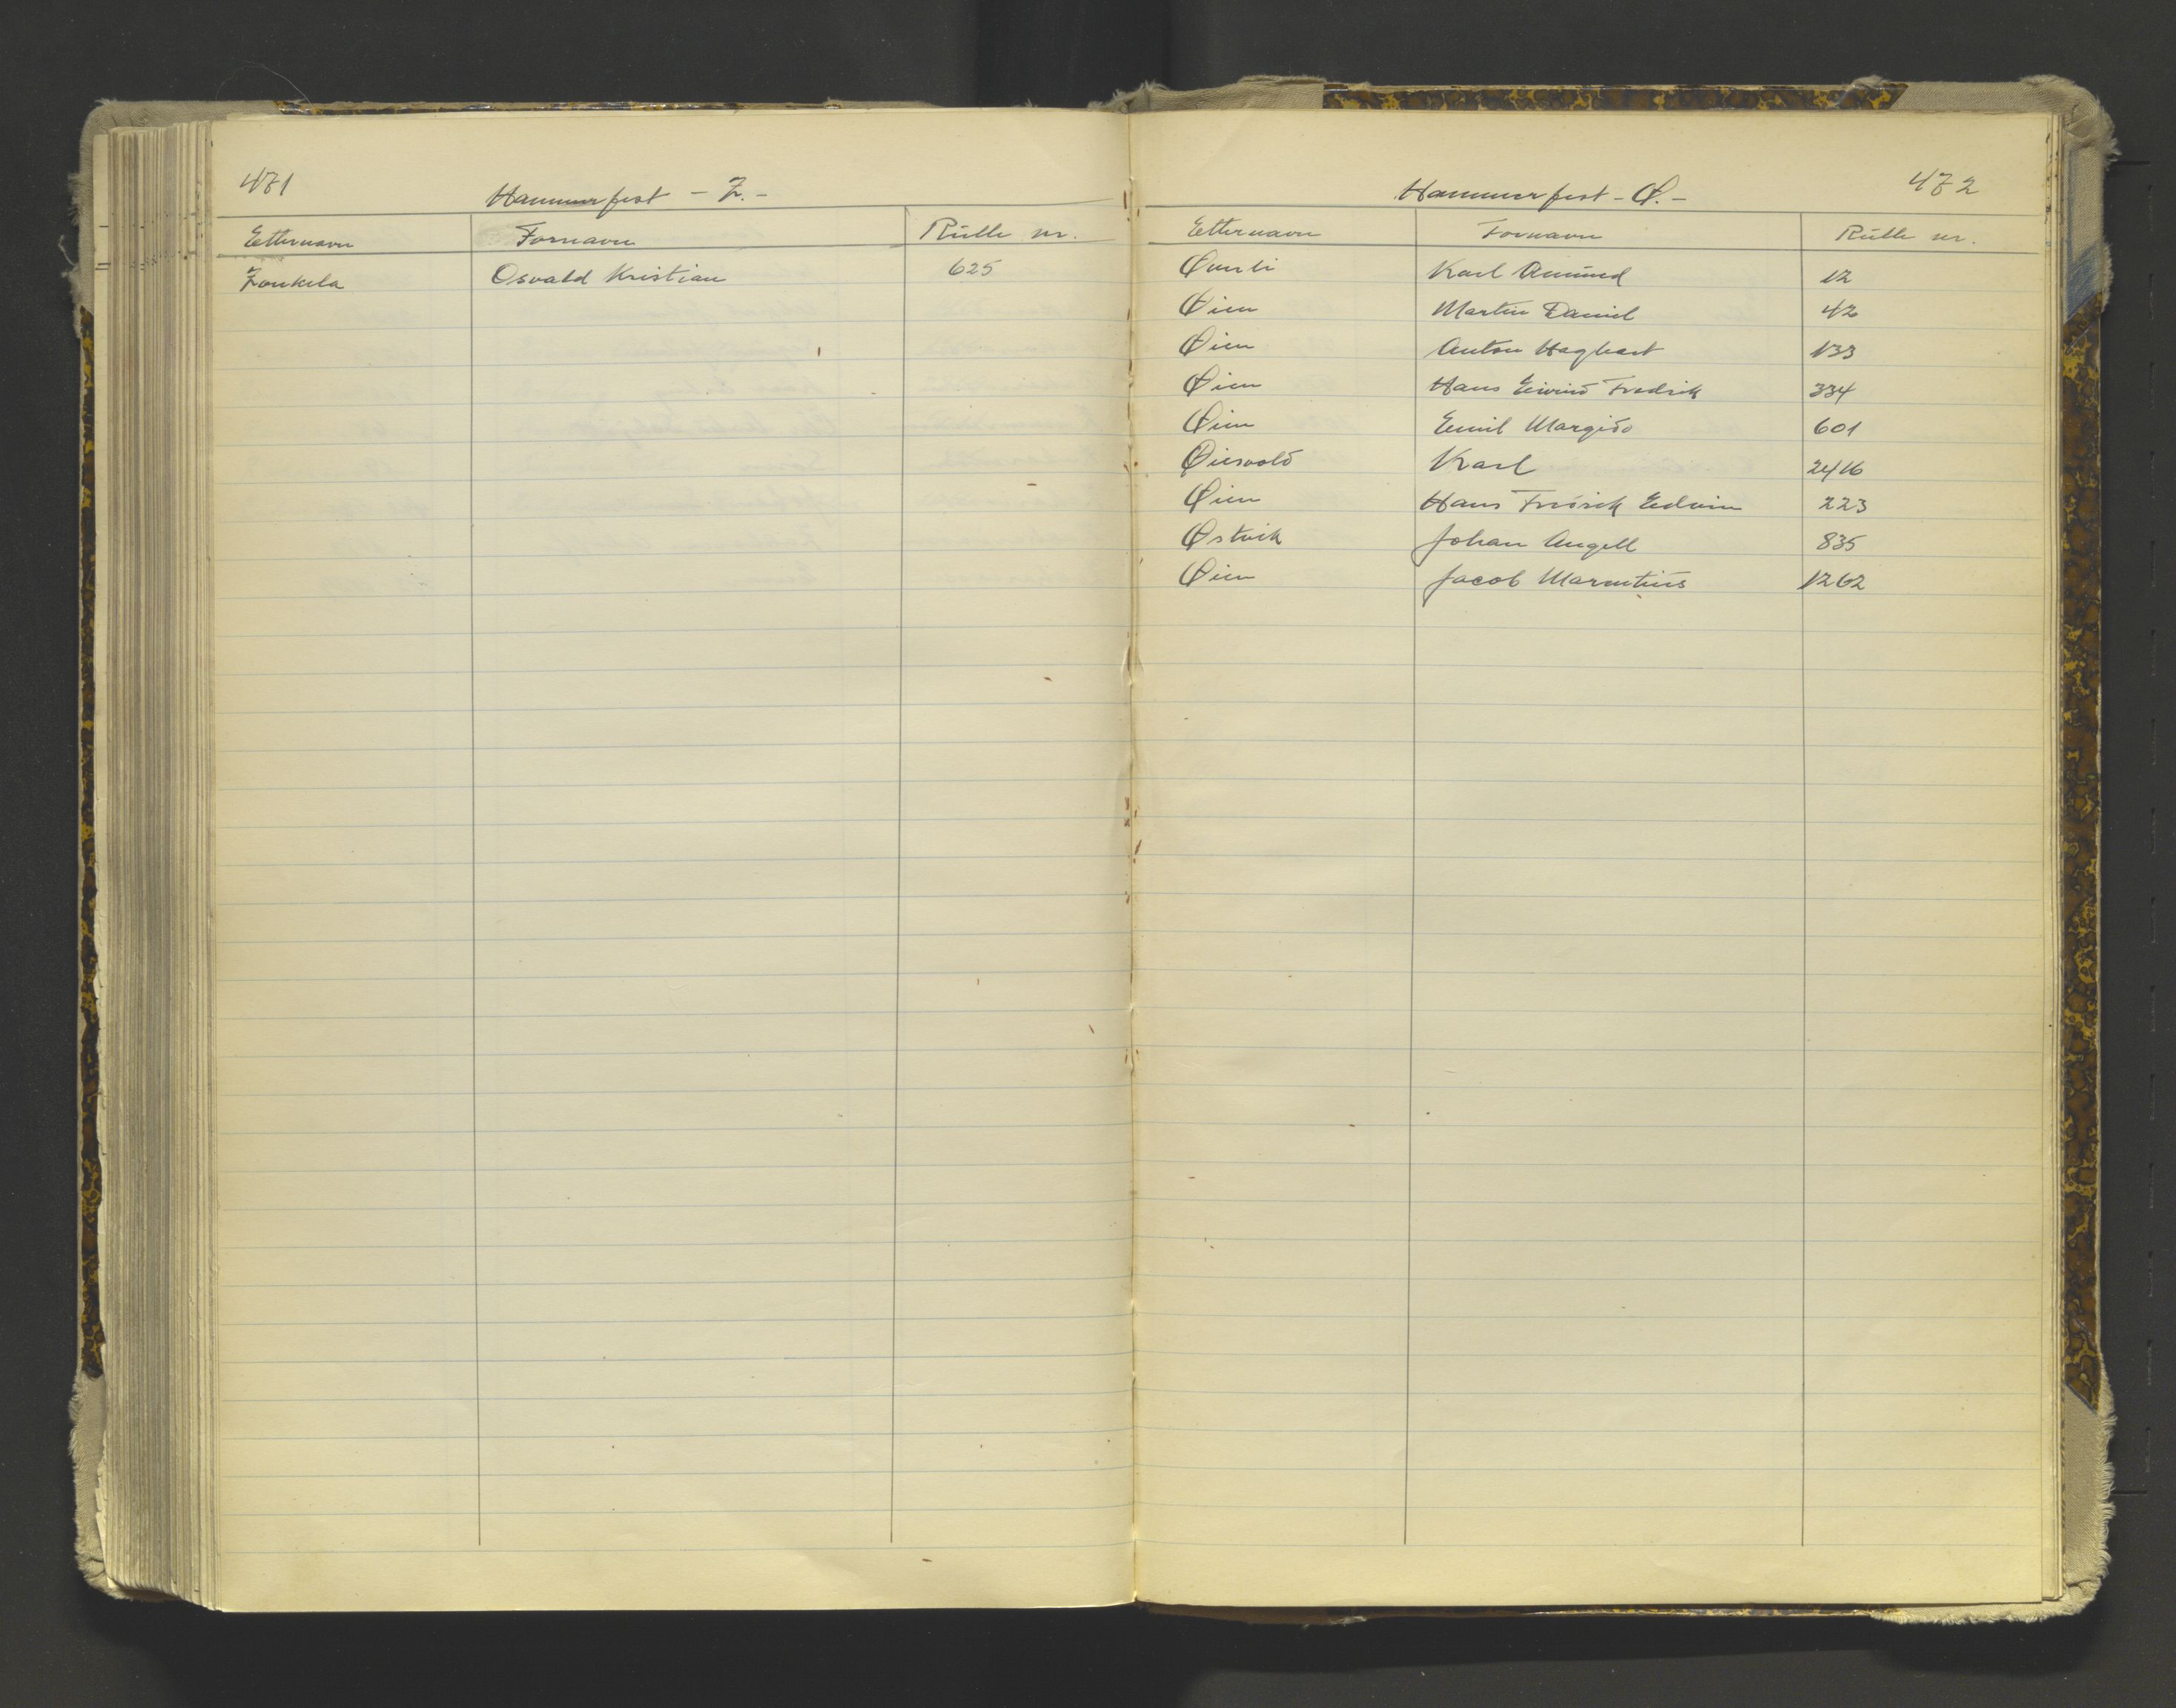 471
Hammerfest - Z. -
Etternavn Fornavn Rulle nr.
Zonkela Osvald Kristian 625
472
Hammerfest - Ø. -
Etternavn Fornavn Rulle nr.
Karl Amund 12
Øien Martin Daniel 42
Øien Anton Hagbart 133
Øien Hans Eivind Fredrik 334
Øien Emil Margido 601
Øiesvold Karl 2416
Øien Hans Fredrik Edvin 223
Østvik Johan Angell 835
Øien Jacob Marentius 1262